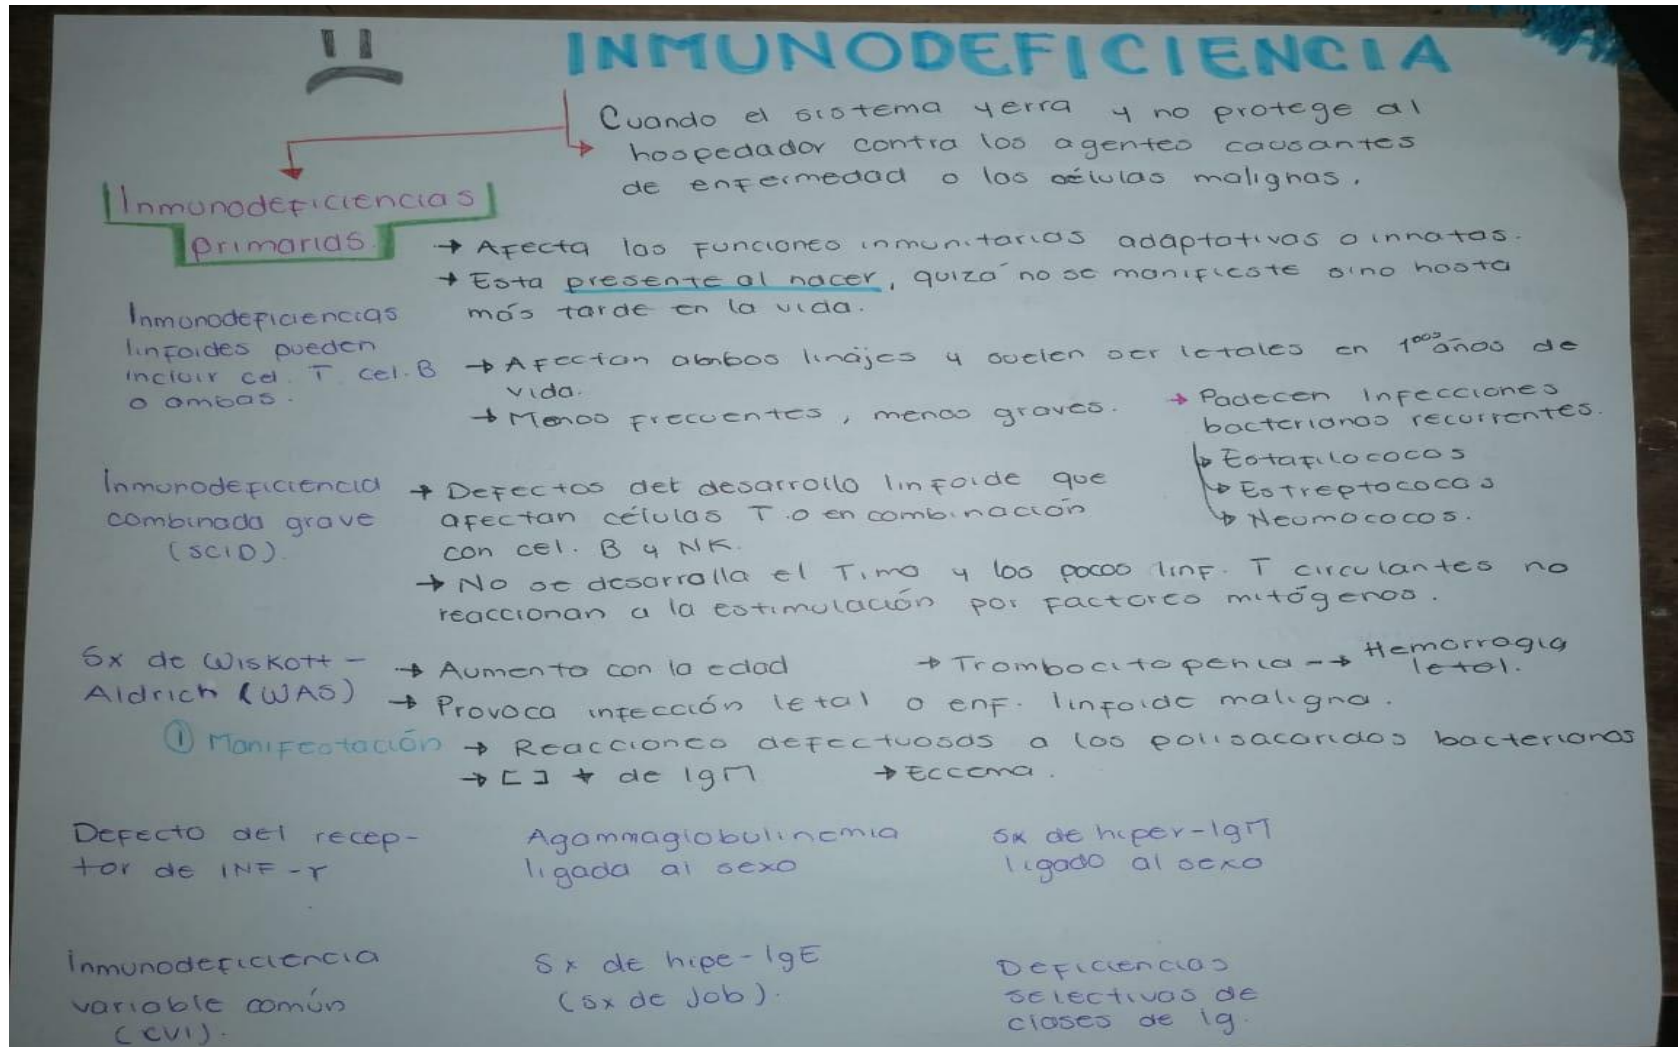 INMUNODEFICIENCIA
Cuando el sistema yerra y no protege al
hospedador contra los agentes causantes
de enfermedad o las células malignas.
Inmunodeficiencias
primarias.
→ Afecta las funciones inmunitarias adaptativas o innatas.
→ Esta presente al nacer, quizá no se manifieste sino hasta
más tarde en la vida.
Inmunodeficiencias
linfoides pueden
incluir cel. T cel. B
o ambas.
→ Afectan ambos linájes y suelen ser letales en 1ros años de
vida.
→ Menos frecuentes, menos graves.
→ Padecen Infecciones
bacterianas recurrentes.
→ Estafilococos
→ Estreptococos
→ Neumococos.
Inmunodeficiencia
combinada grave
(SCID).
→ Defectos del desarrollo linfoide que
afectan células T o en combinación
con cel. B y NK.
→ No se desarrolla el Timo y los pocos linf. T circulantes no
reaccionan a la estimulación por factores mitógenos.
Sx de Wiskott-
Aldrich (WAS)
→ Aumenta con la edad
→ Trombocitopenia --→ Hemorragia
letal.
→ Provoca infección letal o enf. linfoide maligna.
① Manifestación → Reacciones defectuosas a los polisacaridos bacterianos
→ [ ] ↓ de IgM → Eccema.
Defecto del recep-
tor de INF-γ
Agammaglobulinemia
ligada al sexo
Sx de hiper-IgM
ligado al sexo
Inmunodeficiencia
variable común
(CVI).
Sx de hipe-IgE
(Sx de Job).
Deficiencias
selectivas de
clases de Ig.